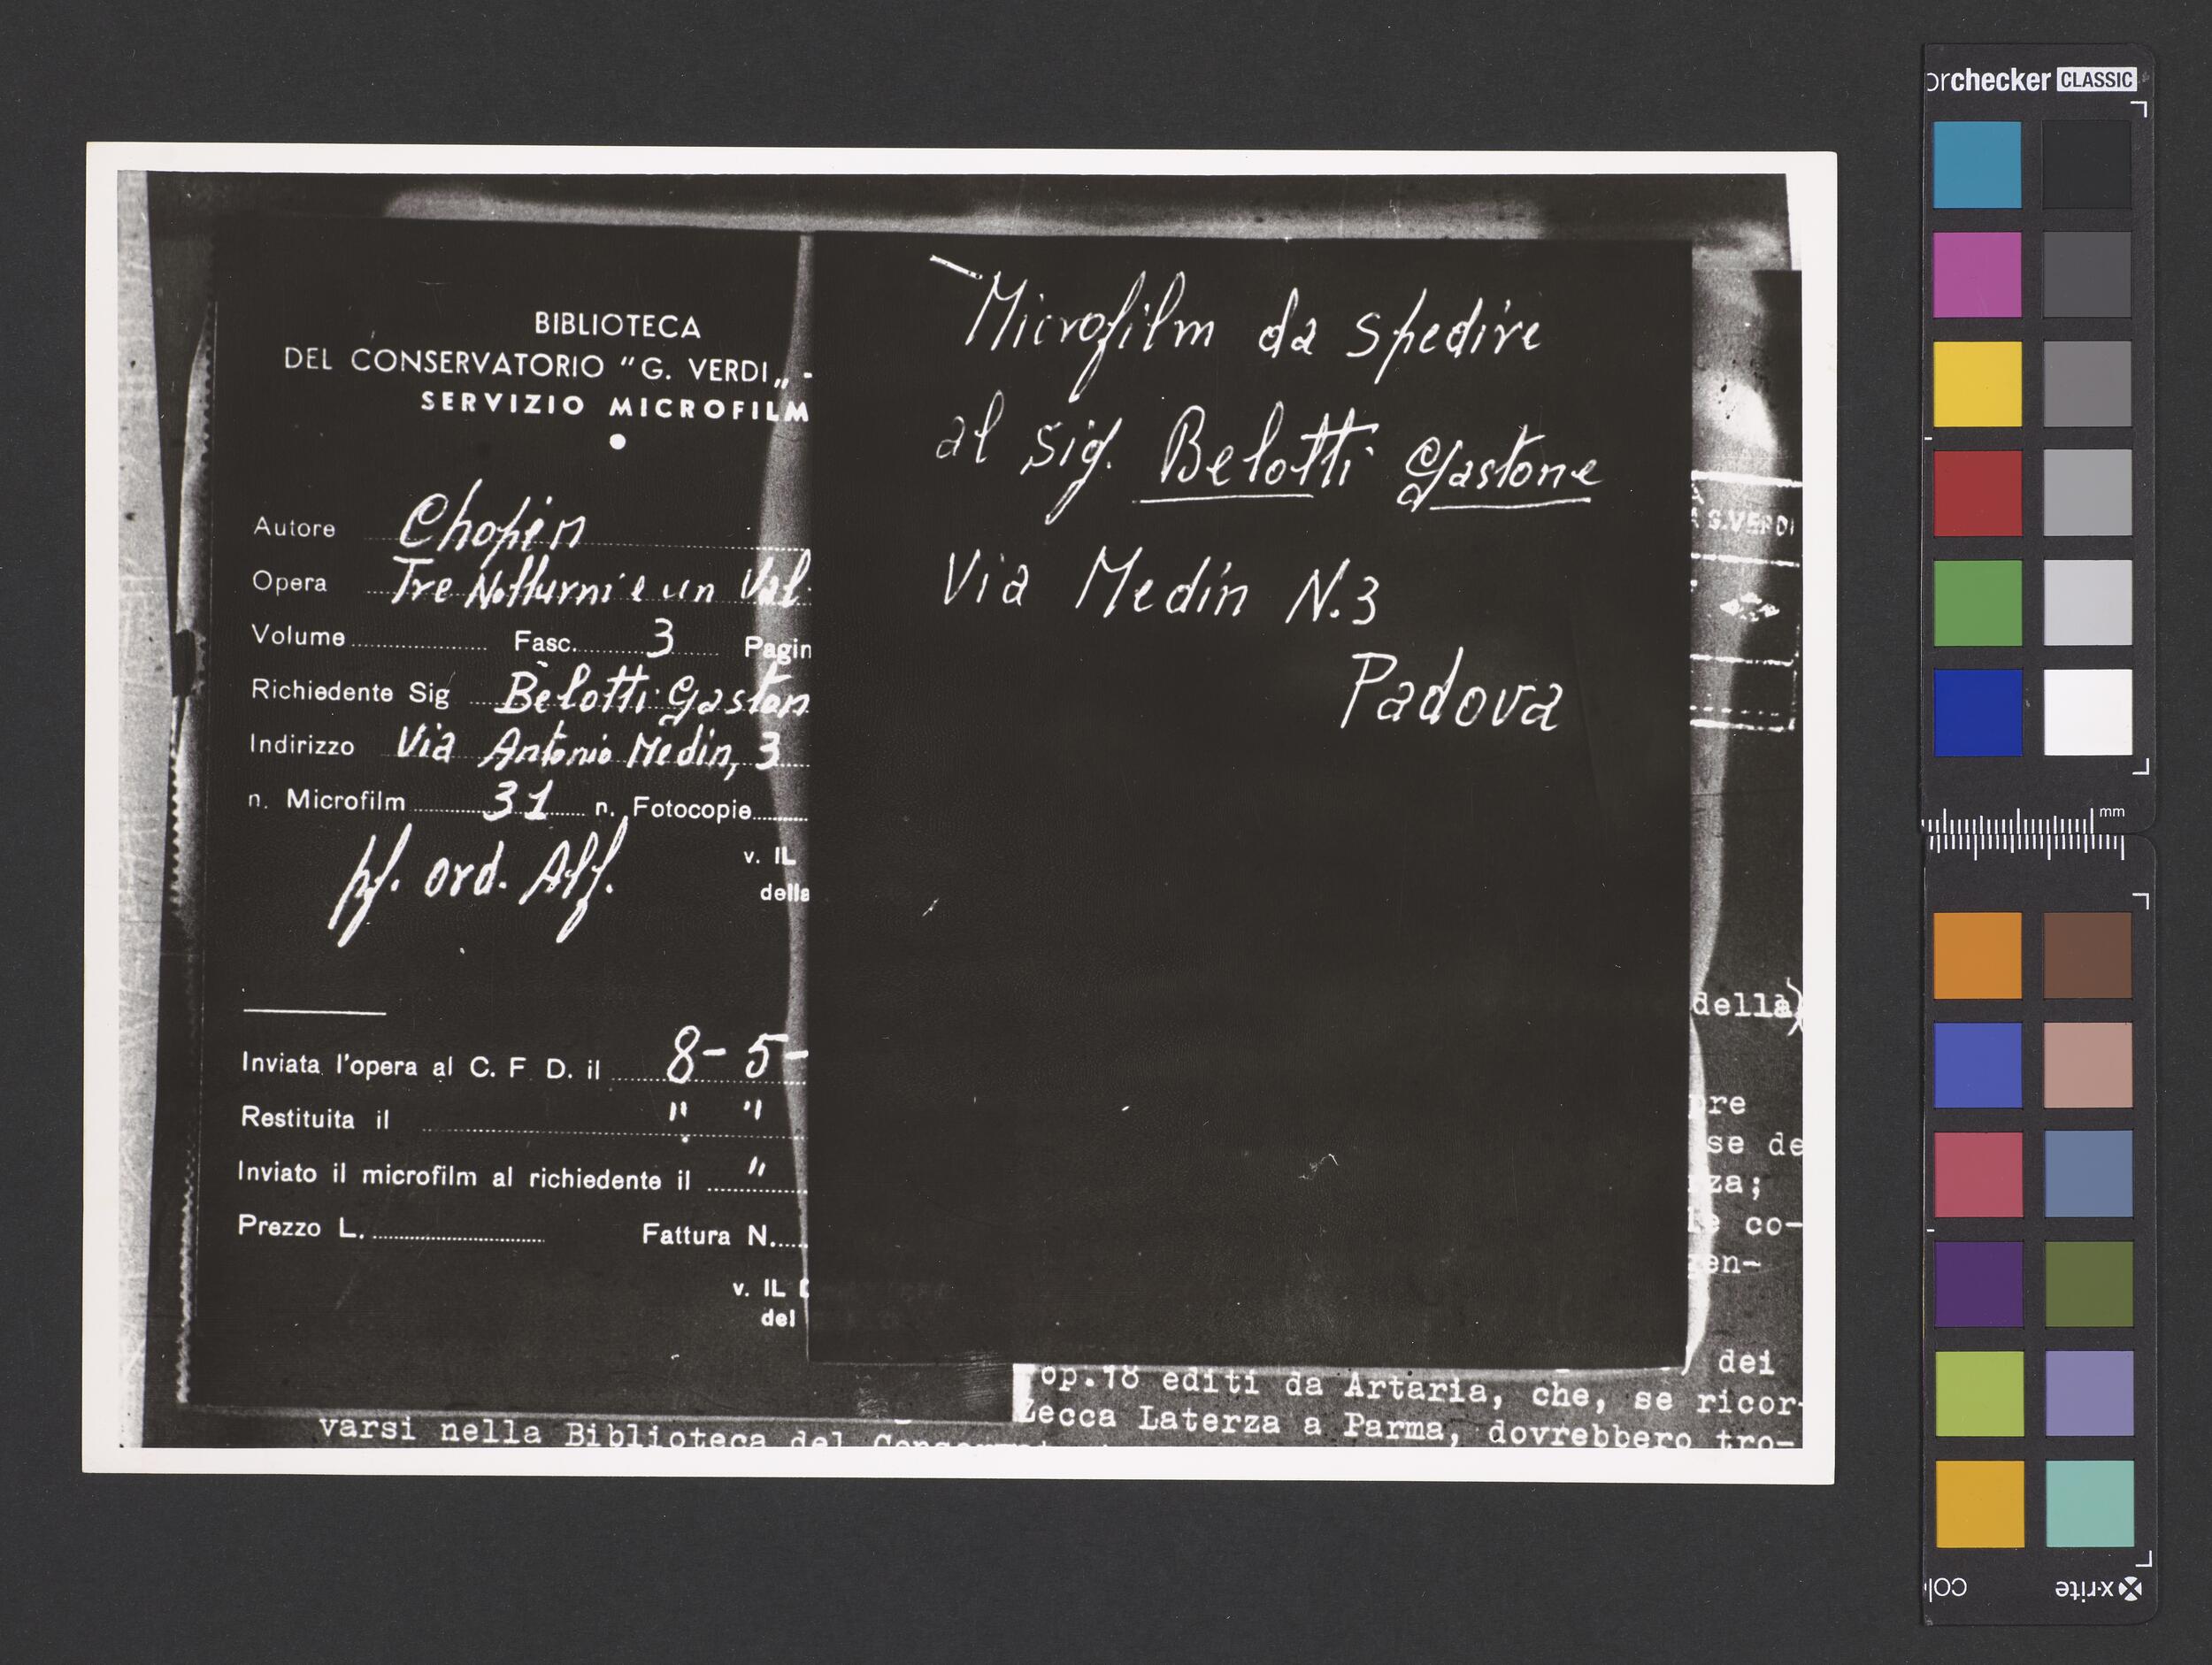 BIBLIOTECA
DEL CONSERVATORIO "G. VERDI„ -
SERVIZIO MICROFILM
Autore Chopin
Opera Tre Notturni e un Val
Volume Fasc. 3 Pagin
Richiedente Sig Belotti Gaston
Indirizzo Via Antonio Medin, 3
n. Microfilm 31 n. Fotocopie
v. IL
della
ord. Aff.
Inviata l'opera al C. F. D. il 8-5-
Restituita il " "
Inviato il microfilm al richiedente il "
Prezzo L. Fattura N.
v. IL D
del
Microfilm da spedire
al sig. Belotti Gastone
Via Medin N.3
Padova
G.VERDI
della)
re
se de
za;
co-
en-
dei
op.18 editi da Artaria, che, se ricor-
Zecca Laterza a Parma, dovrebbero tro-
varsi nella Biblioteca del
orchecker CLASSIC
mm
x-rite
col